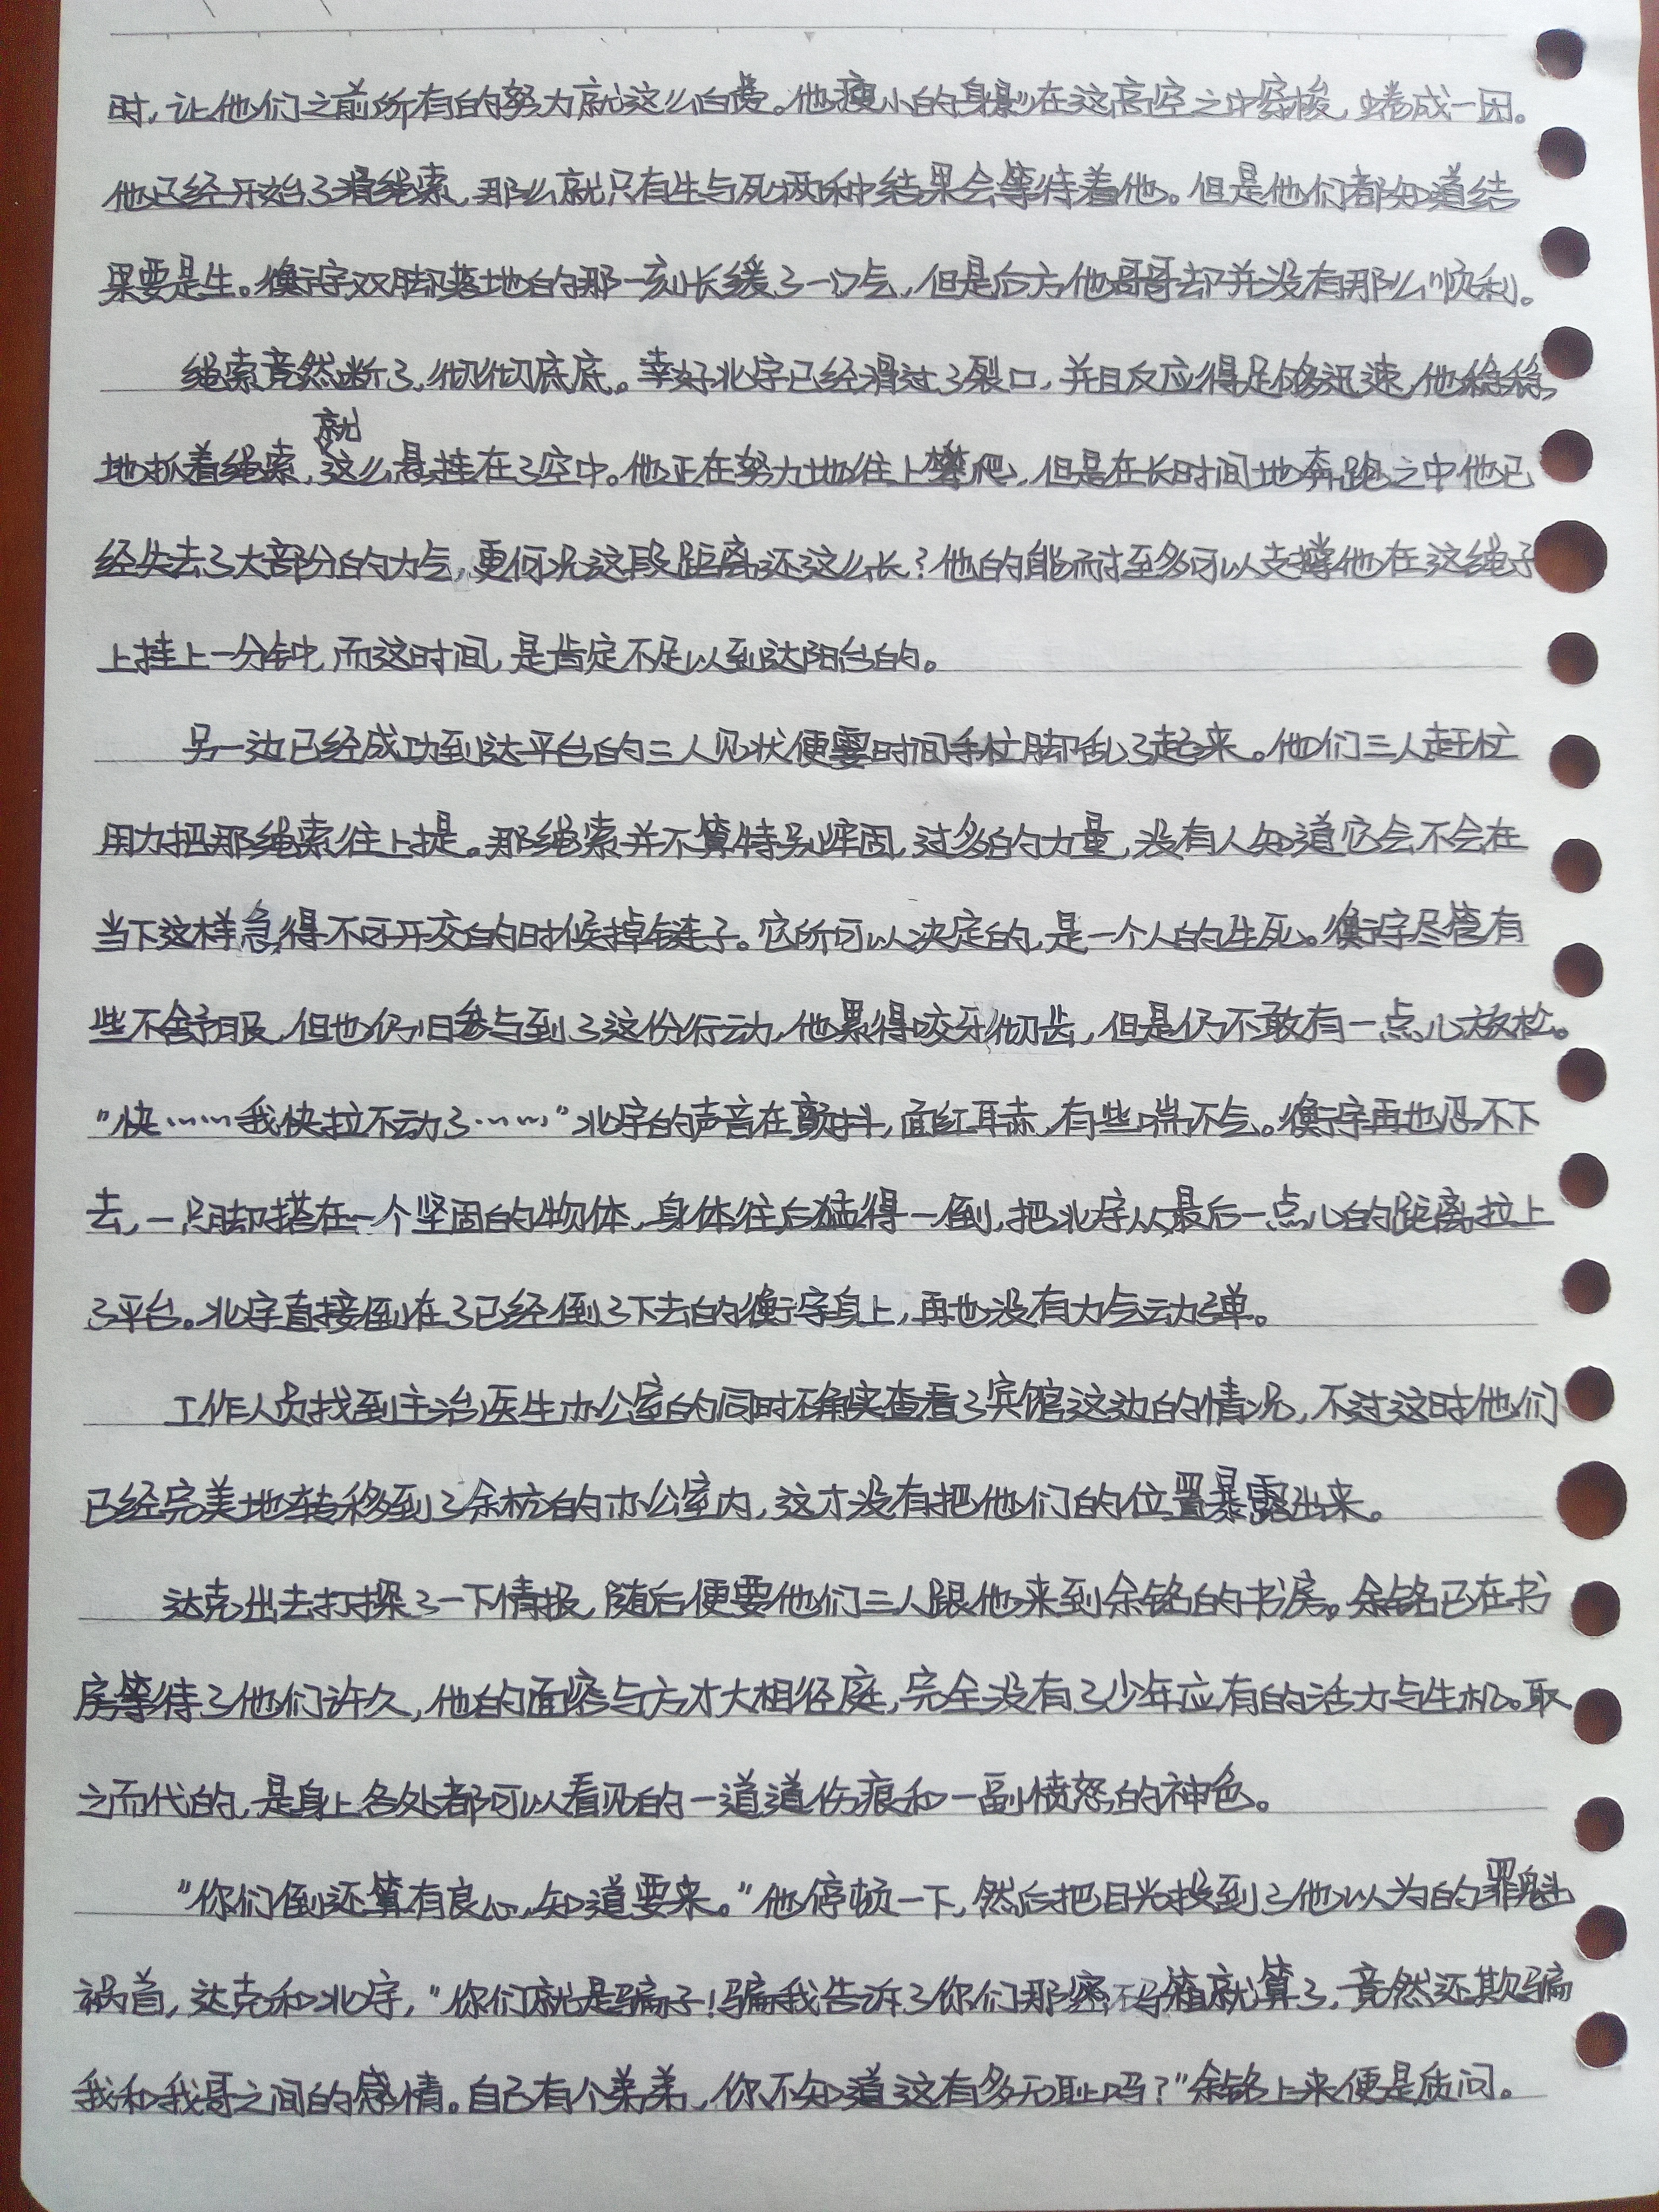 时，让他们之前所有的努力就这么白费。他瘦小的身影在这高空之中穿梭，蜷成一团。
他已经开始了滑绳索，那么就只有生与死两种结果会等待着他。但是他们都知道结
果要是生。衡宇双脚落地的那一刻长缓了一口气，但是后方他哥哥却并没有那么顺利。
绳索竟然断了，彻彻底底。幸好北宇已经滑过了裂口，并且反应得足够迅速，他稳稳
地抓着绳索，就这么悬挂在了空中。他正在努力地往上攀爬，但是在长时间地奔跑之中他已
经失去了大部分的力气，更何况这段距离还这么长？他的能耐至多可以支撑他在这绳子
上挂上一分钟，而这时间，是肯定不足以到达阳台的。
另一边已经成功到达平台的三人见状便霎时间手忙脚乱了起来。他们三人赶忙
用力把那绳索往上提。那绳索并不算特别牢固，过多的力量，没有人知道它会不会在
当下这样急得不可开交的时候掉链子。它所可以决定的，是一个人的生死。衡宇尽管有
些不舒服，但也仍旧参与到了这份行动，他累得咬牙彻齿，但是仍不敢有一点儿放松。
“快……我快拉不动了……”北宇的声音在颤抖，面红耳赤，有些喘不气。衡宇再也忍不下
去，一只脚搭在一个坚固的物体，身体往后猛得一倒，把北宇从最后一点儿的距离拉上
了平台。北宇直接倒在了已经倒了下去的衡宇身上，再也没有力气动弹。
工作人员找到主治医生办公室的同时不确实查看了宾馆这边的情况，不过这时他们
已经完美地转移到了余杭的办公室内，这才没有把他们的位置暴露出来。
达克出去打探了一下情报，随后便要他们三人跟他来到余铭的书房。余铭已在书
房等待了他们许久，他的面容与方才大相径庭，完全没有了少年应有的活力与生机。取
之而代的，是身上各处都可以看见的一道道伤痕和一副愤怒的神色。
“你们倒还算有良心，知道要来。”他停顿一下，然后把目光投到了他以为的罪魁
祸首，达克和北宇，“你们就是骗子！骗我告诉了你们那密码箱就算了，竟然还欺骗
我和我哥之间的感情。自己有个弟弟，你不知道这有多无耻吗？”余铭上来便是质问。